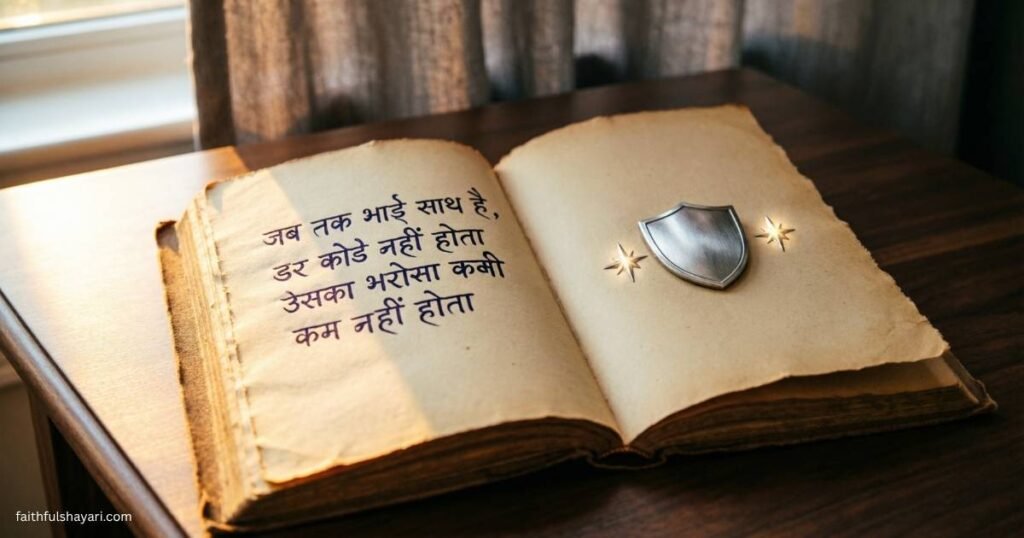 जब तक भाई साथ है,
डर कोडे नहीं होता
उसका भरोसा कमी
कम नहीं होता
faithfulshayari.com